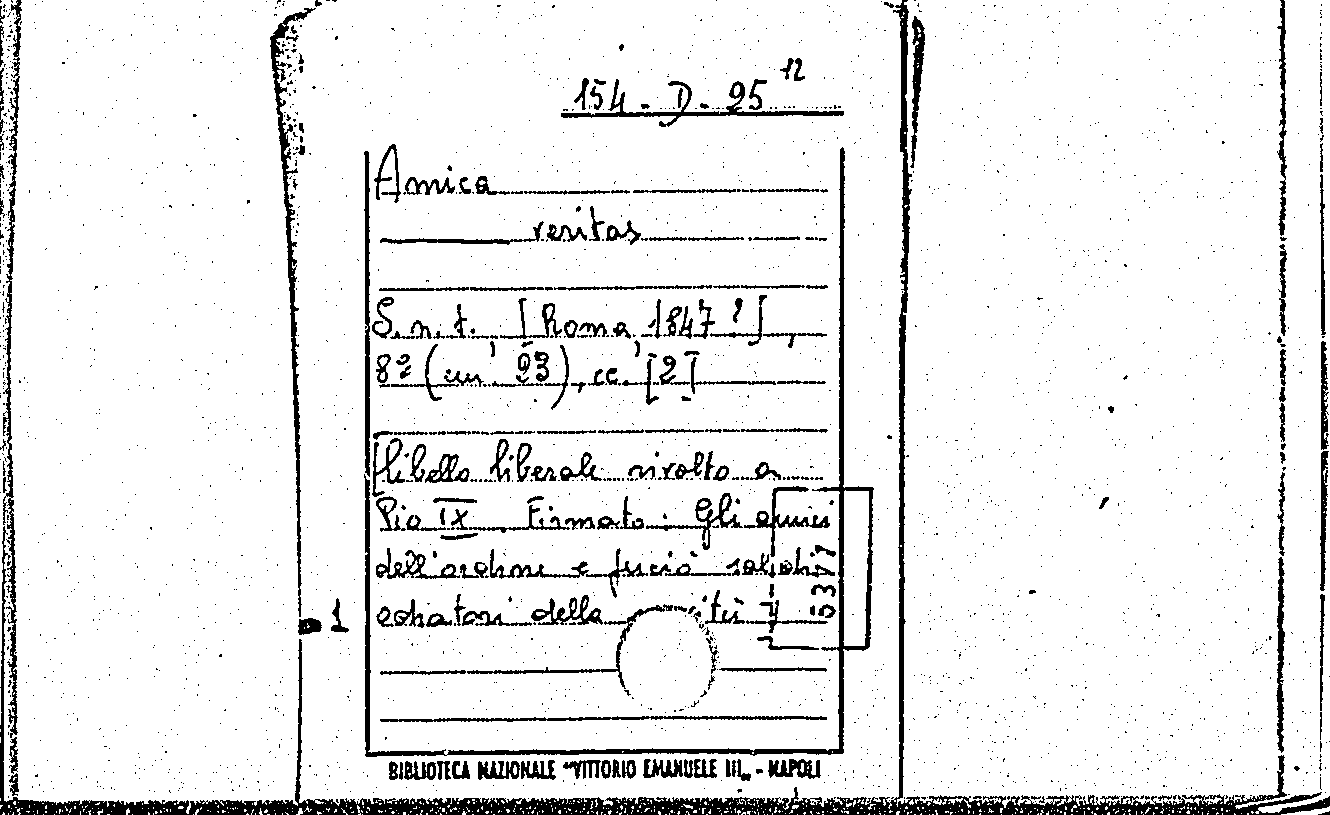 154. D. 25 12
Amica
veritas
S. n. t. [Roma, 1847?],
8º (cm. 23), cc. [2]
[libello liberale rivolto a
Pio IX. Firmato: Gli amici
dell'ordine e perciò
della
1
5377
BIBLIOTECA NAZIONALE "VITTORIO EMANUELE III„ - NAPOLI